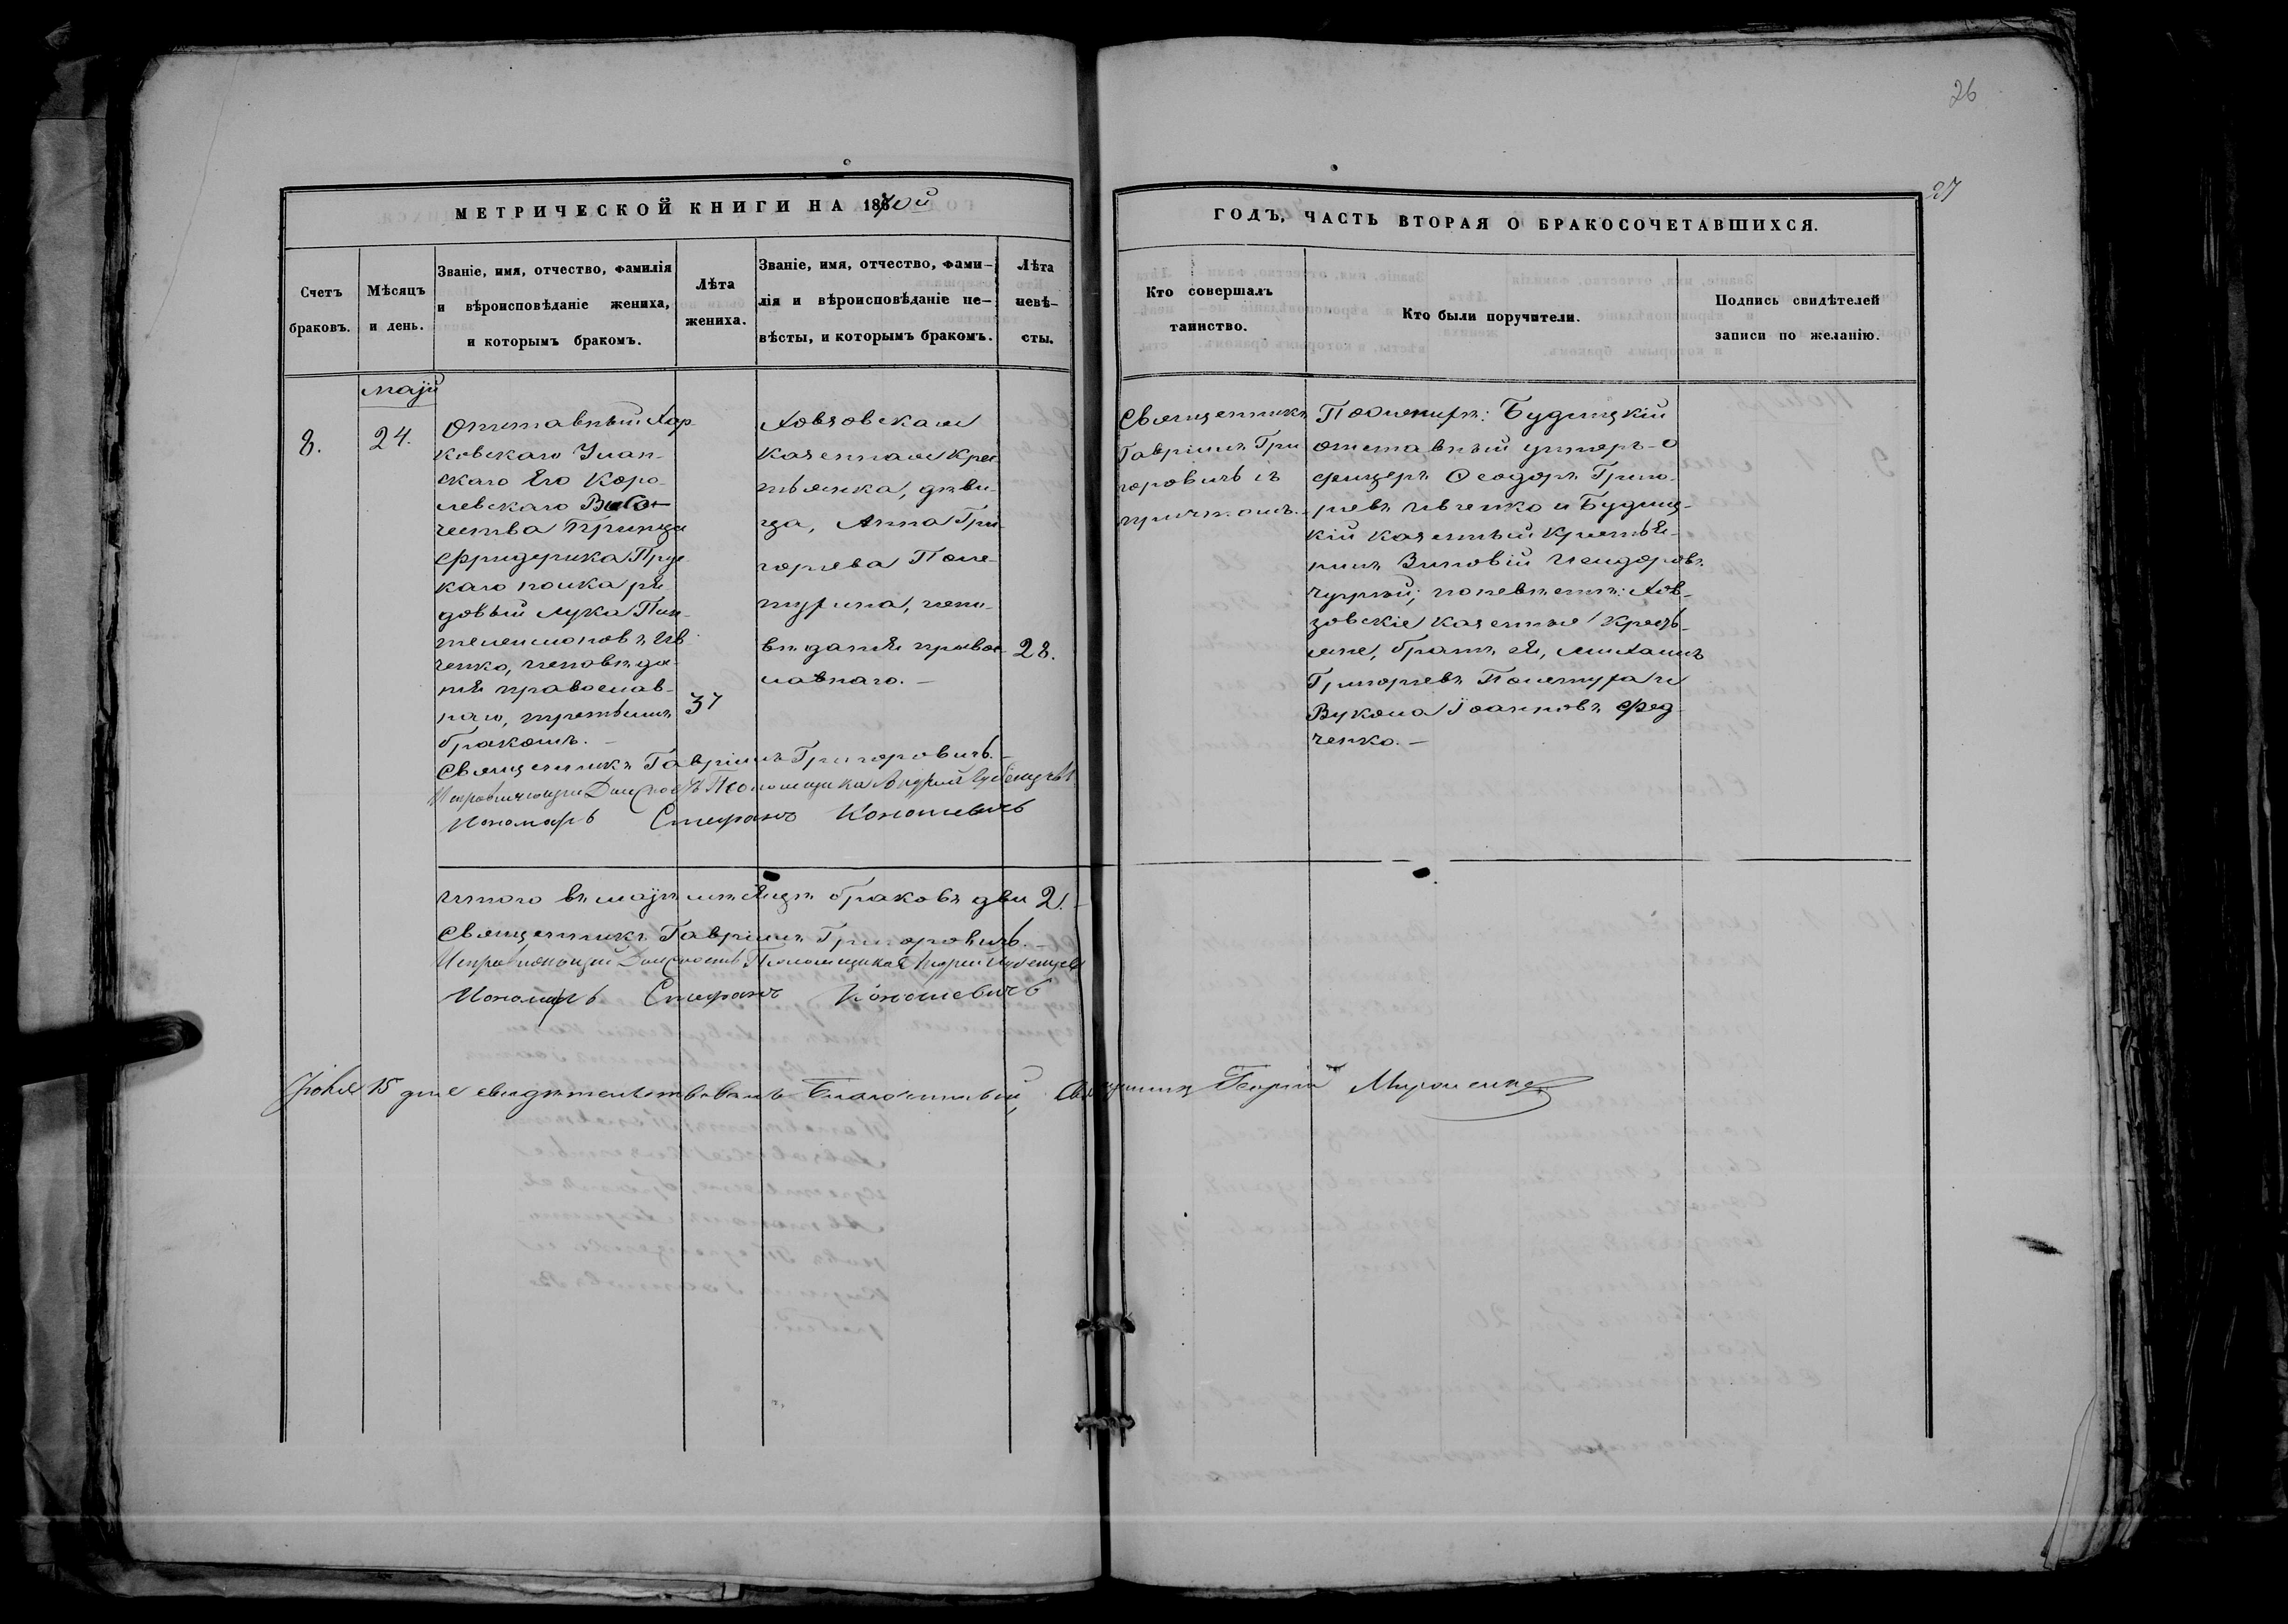 26
27
МЕТРИЧЕСКОЙ КНИГИ НА 1870й
ГОДЪ, ЧАСТЬ ВТОРАЯ О БРАКОСОЧЕТАВШИХСЯ.
Счетъ
браковъ.
Мѣсяцъ
и день.
Званіе, имя, отчество, фамилія
и вѣроисповѣданіе жениха,
и которымъ бракомъ.
Лѣта
жениха.
Званіе, имя, отчество, фами-
лія и вѣроисповѣданіе не-
вѣсты, и которымъ бракомъ.
Лѣта
невѣ-
сты.
Кто совершалъ
таинство.
Кто были поручители.
Подпись свидѣтелей
записи по желанію.
маій
8.
24.
Отставный Хар-
ковскаго Улан-
скаго Его Коро-
левскаго Высо-
чества Принца
Фридерика Прус
каго полка ря-
довый Лука Пан-
телеимоновъ Ив-
ченко, исповѣда-
нія православ-
наго, третьимъ
бракомъ.
37
Ховзовская
казенная крес-
тьянка, дѣви-
ца, Анна Гри-
горьева Поле-
тухина, испо-
вѣданія правос-
лавнаго.
28.
Священникъ
Гавріилъ Гри
горовичъ съ
причтомъ.
По женихѣ: Будищкій
отставный унтеръ-о
фицеръ Феодоръ Григо-
рьевъ Ивченко и Будищ-
кій казенный крестья-
нинъ Зиновій Исидоровъ
; по невѣстѣ: Хов-
зовскіе казенные кресть-
яне, братъ ея, Михаилъ
Григорьевъ и
Вукола Іоанновъ Фед-
ченко.
Священникъ Гавріилъ Григоровичъ.
Исправляющій Должность Псаломщика Андрей
Пономарь Стефанъ Кононевичъ
Итого въ маіи мѣсяцѣ браковъ два 2.
Священникъ Гавріилъ Григоровичъ.
Исправляющій Должность Псаломщика Андрей
Пономарь Стефанъ Кононевичъ
Іюня 15 дня свидѣтельствовалъ Благочинный, Священникъ Георгій